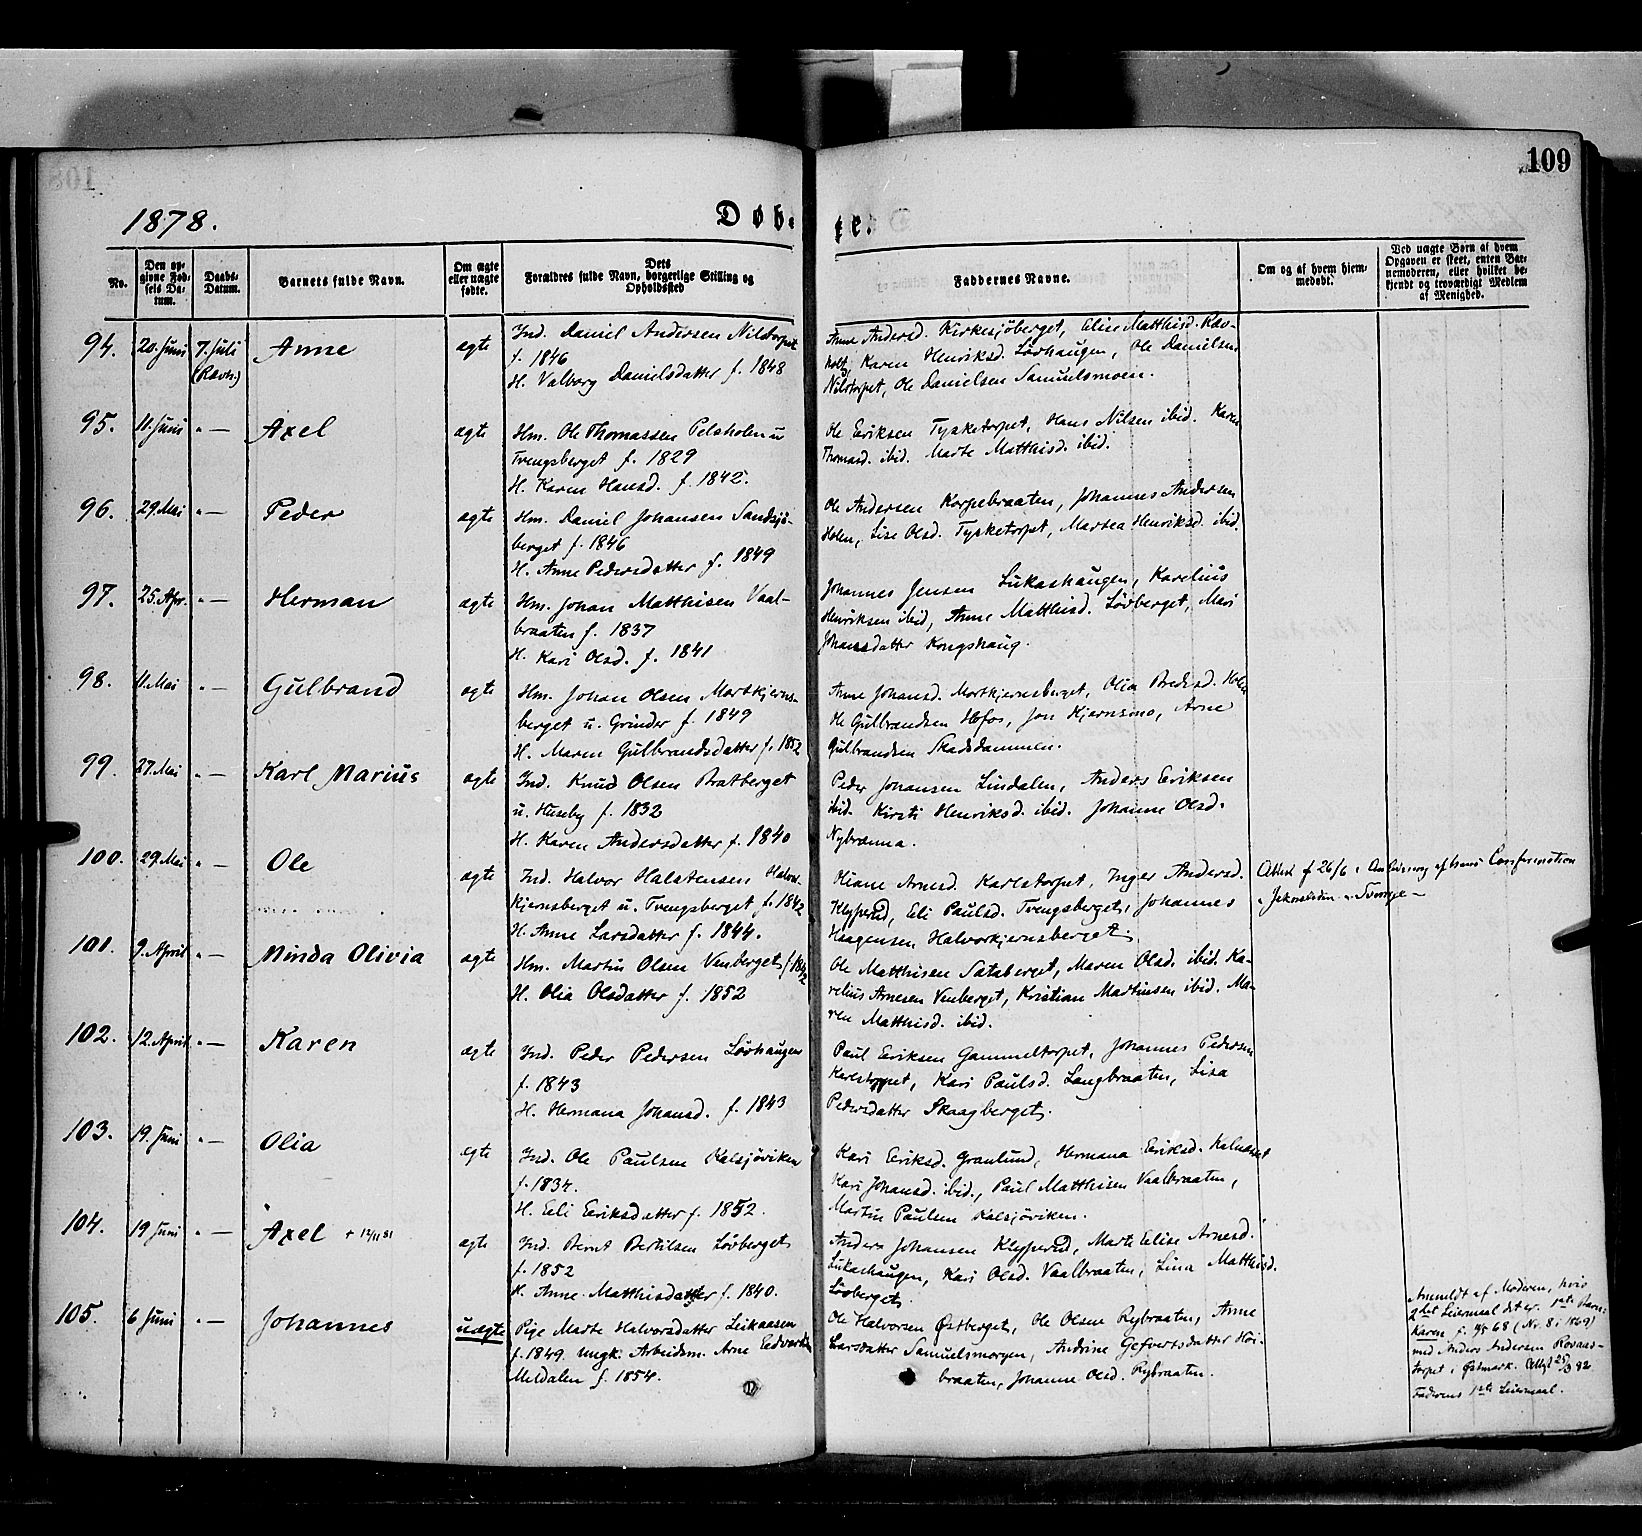 109
1878.
Døb-
te.
No.
Den op-
givne Fød-
sels Da-
tum.
Daabs-
Datum.
Barnets fulde Navn.
Om ægte
eller uægte
fødte.
Dets
Forældres fulde Navn, borgerlige Stilling og
Opholdssted
Faddernes Navne.
Om og af hvem hjem-
medøbt.
Ved uægte Børn af hvem
Opgaven er skeet, enten Bar-
nemoderen, eller hvilket be-
kjendt og troværdigt Medlem
af Menighed.
94. 20. Juni 7. Juli Anne ægte
(Ravh.)
Ind. Daniel Andersen Nilstorpet
f. 1846
H. Valborg Danielsdatter f. 1848
Anne Andersd. Kirkesjöberget, Elise Matthisd. Rav-
holt, Karen Henriksd. Lövhaugen, Ole Danielsen
Nilstorpet, Ole Danielsen Samuelsmoen.
95. 11. Juni " — Axel ægte
Hm. Ole Thomassen Pelsholen u
Trengsberget f. 1829
H. Karen Hansd. f. 1842.
Ole Eriksen Tysketorpet, Hans Nilsen ibid. Karen
Thomasd. ibid. Marte Matthisd. ibid.
96. 29. Mai " — Peder ægte
Hm. Daniel Johansen Sandsjö-
berget f. 1846
H. Anne Pedersdatter f. 1849
Ole Andersen Korpebraaten, Johannes Andersen
Holen, Lise Olsd. Tysketorpet, Marsea Henriksd. ibid.
97. 25. Apr. " — Herman ægte
Hm. Johan Matthisen Vaal-
braaten f. 1837
H. Kari Olsd. f. 1841
Johannes Jensen Lukashaugen, Karelius
Henriksen ibid, Anne Matthisd. Lövberget, Mari
Johansdatter Kongshaug.
98. 11. Mai " — Gulbrand ægte
Hm. Johan Olsen Mortkjerns-
berget u. Grinder f. 1849
H. Maren Gulbrandsdatter f. 1852
Anne Johansd. Mortkjernsberget, Olia Bredesd. Holen
Ole Gulbrandsen Hofos, Jon Kjernsmo, Arne
Gulbrandsen Skadsdammen.
99. 27. Mai " — Karl Marius ægte
Ind. Knud Olsen Bratberget
u. Huseby f. 1832
H. Karen Andersdatter f. 1840
Peder Johansen Lindalen, Anders Eriksen
ibid. Kirsti Henriksd. ibid. Johanne Olsd.
Nybrænna.
100. 29. Mai " — Ole ægte
Ind. Halvor Halstensen Halvor-
kjernsberget u. Trengsberget f. 1842
H. Anne Larsdatter f. 1844.
Oliane Arnesd. Karlstorpet, Inger Andersd.
Klypperud, Eli Paulsd. Trengsberget, Johannes
Haagensen Halvorkjernsberget.
Attest f 26/6 i Anledning af hans Confirmation
101. 9. April " — Minda Olivia ægte
Hm. Martin Olsen Venberget f. 1842
H. Olia Olsdatter f. 1852
Ole Matthisen Sataberget, Maren Olsd. ibid. Ka-
relius Arnesen Venberget, Kristian Martinsen ibid. Ma-
ren Matthisd. ibid.
102. 12. April " — Karen ægte
Ind. Peder Pedersen Lövhaugen
f. 1843
H. Hermana Johansd. f. 1843
Paul Eriksen Gammeltorpet, Johannes Pedersen
Karlstorpet, Kari Paulsd. Langbraaten, Lisa
Pedersdatter Skaagberget.
103. 19. Juni " — Olia ægte
Ind. Ole Paulsen Kalsjöviken
f. 1834.
H. Eli Eriksdatter f. 1852.
Kari Eriksd. Granlund, Hermana Eriksd. Kalneset
Kari Johansd. ibid., Paul Matthisen Vaalbraaten,
Martin Paulsen Kalsjöviken.
104. 19 Juni " — Axel + 12/11 81 ægte
Ind. Bernt Bertilsen Lövberget
f. 1852
H. Anne Matthisdatter f. 1840.
Anders Johansen Klypperud, Marte Elise Arnesd.
Lukashaugen, Kari Olsd. Vaalbraaten, Lina Matthisd.
Lövberget.
105. 6 Juni Johannes uægte
Pige Marte Halvorsdatter Leikaasen
f. 1849. Ungk. Arbeidsm. Arne Edvardsen
Meldalen f. 1854.
Ole Halvorsen Østberget, Ole Olsen Rybraaten, Anne
Larsdatter Samuelsmoen, Andrine Gefvertsdatter Hör-
braaten, Johanne Olsd. Rybraaten.
Anmeldt af Moderen, hvis
2det Leiermaal det er. 1ste Barn:
Karen (Nr. 8 i 1869)
med Anders Andersen
torpet i Østmark.
Faderens 1ste Leiermaal.